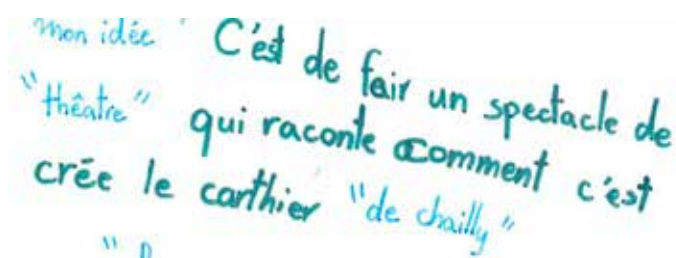 mon idée C'est de fair un spectacle de
"théatre" qui raconte comment c'est
crée le carthier "de chailly"